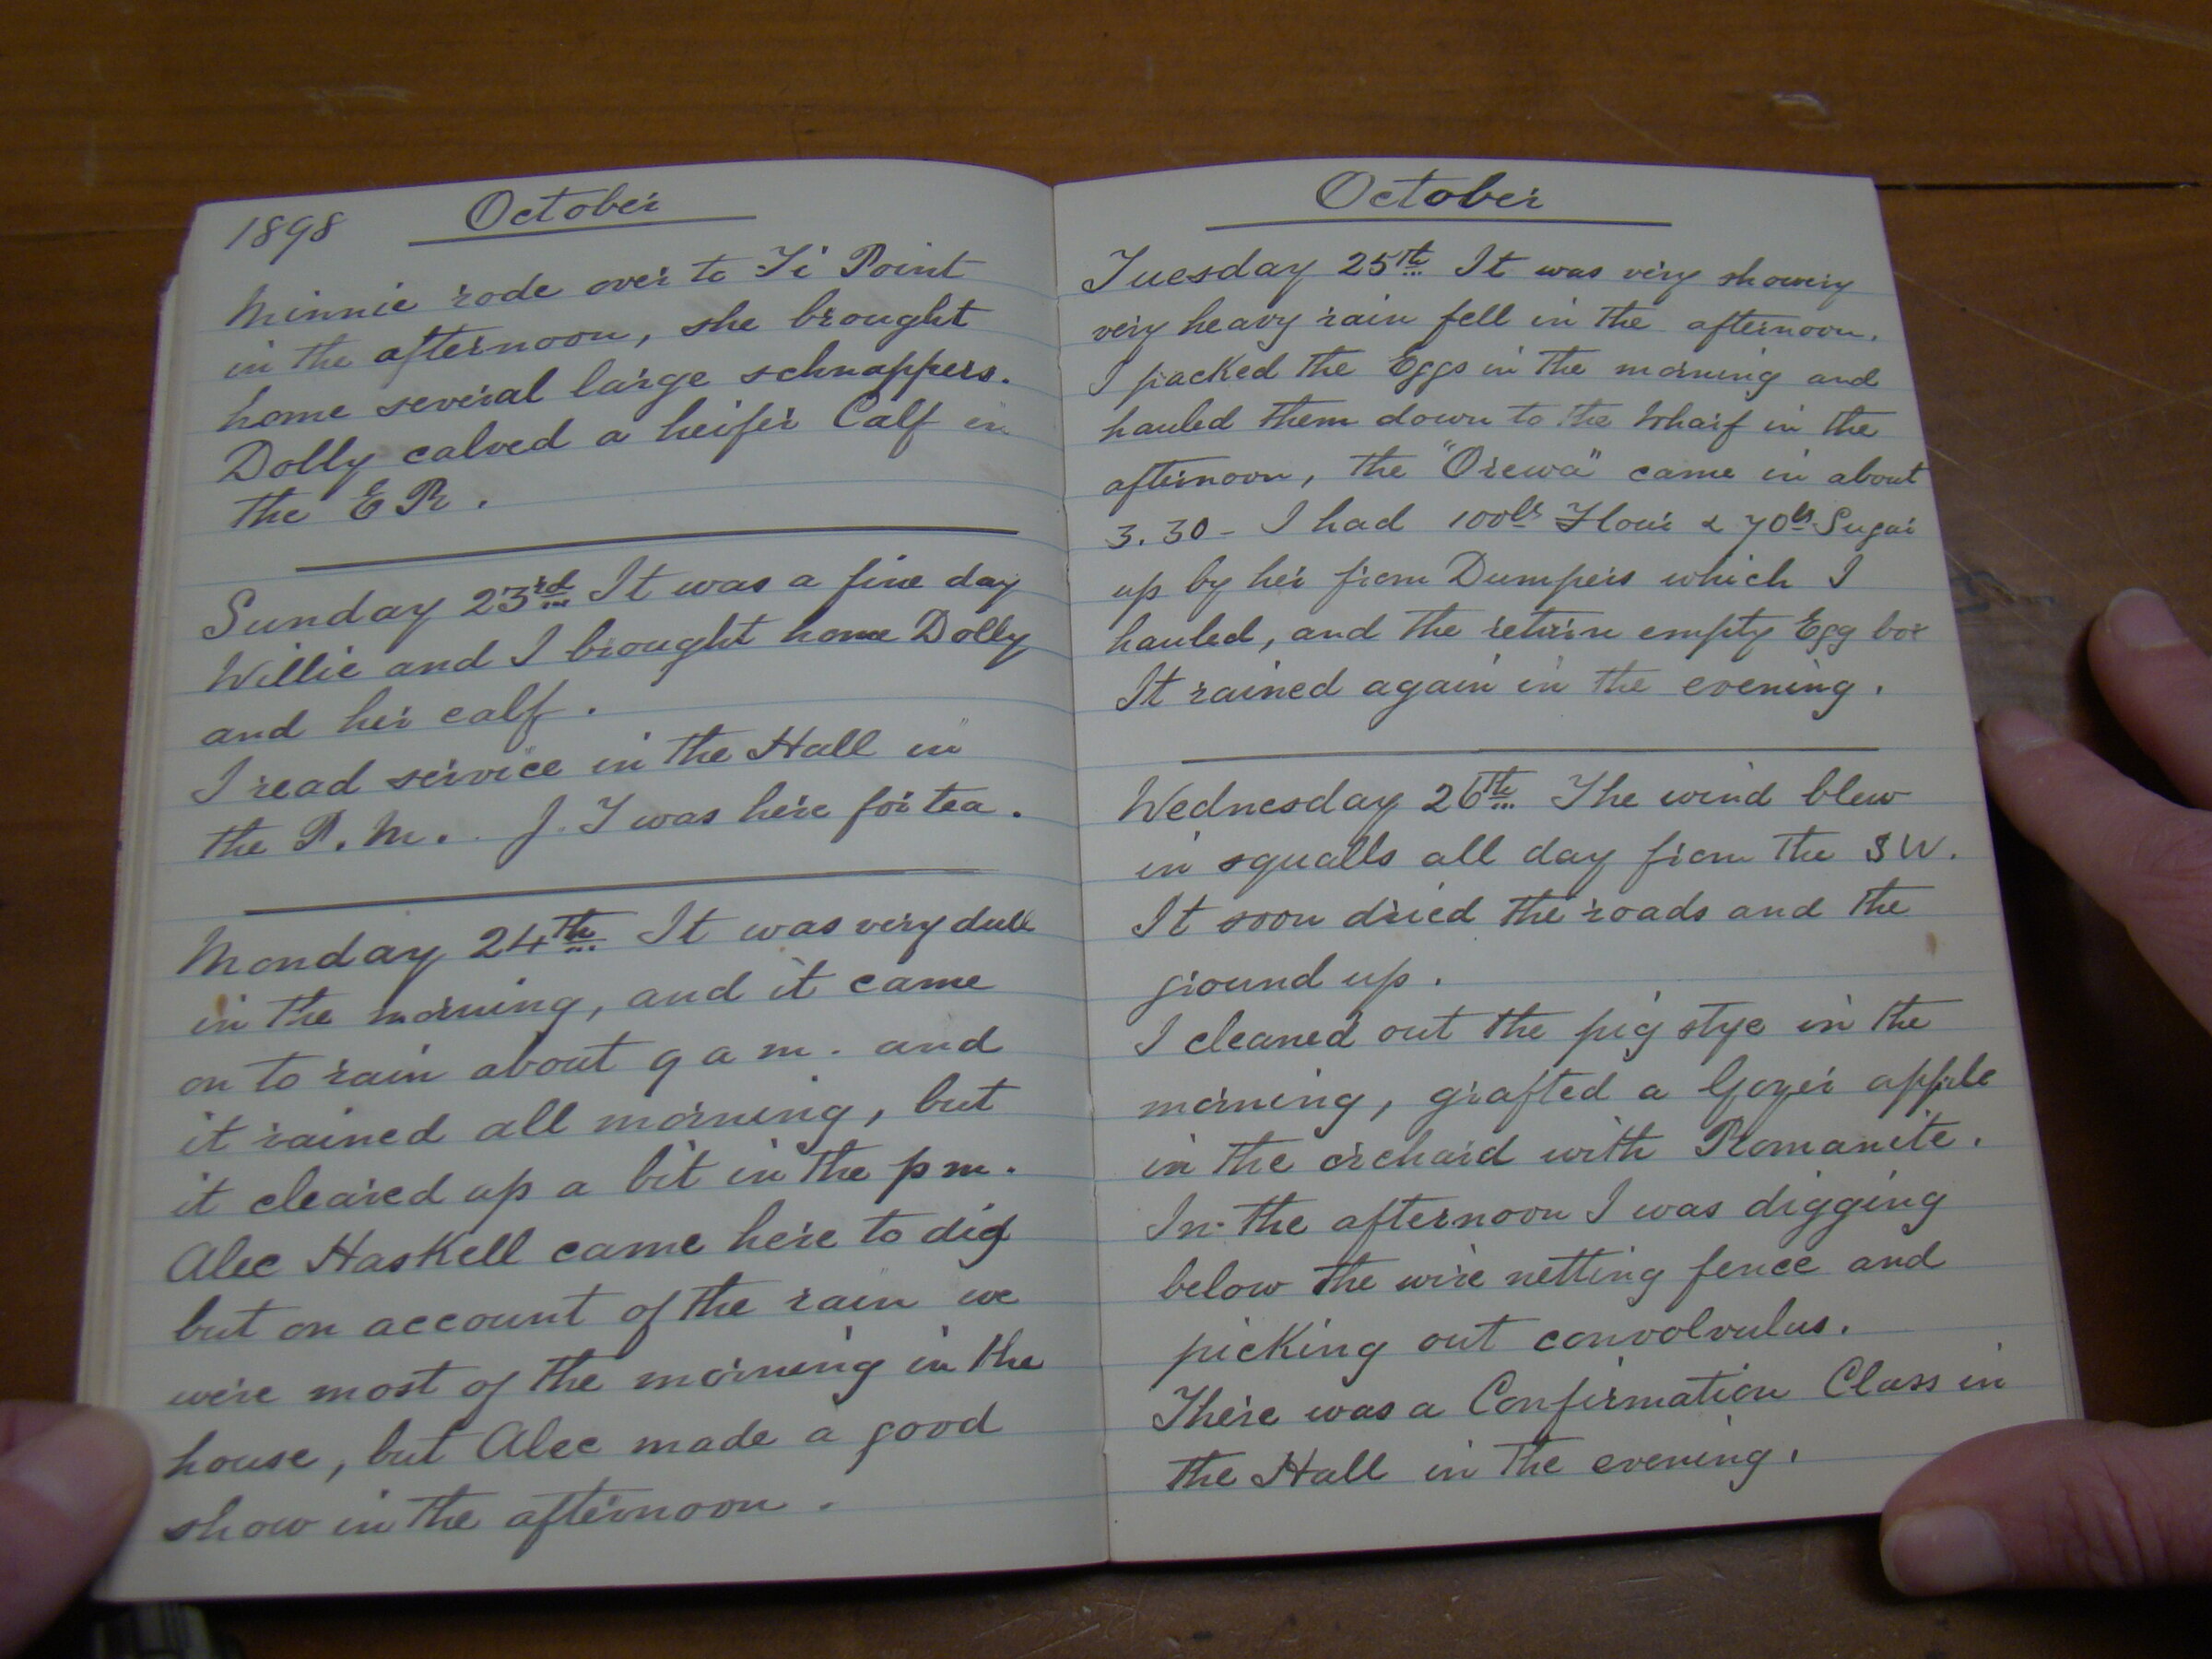 1898 October
Minnie rode over to Ti Point
in the afternoon, she brought
home several large schnappers.
Dolly calved a heifer Calf in
the E R.
Sunday 23rd It was a fine day
Willie and I brought home Dolly
and her calf.
I read service in the Hall in
the P.M. J. T was here for tea.
Monday 24th It was very dull
in the morning, and it came
on to rain about 9 a m. and
it rained all morning, but
it cleared up a bit in the p m.
Alec Haskell came here to dig
but on account of the rain we
were most of the morning in the
house, but Alec made a good
show in the afternoon.
October
Tuesday 25th It was very showery
very heavy rain fell in the afternoon.
I packed the Eggs in the morning and
hauled them down to the Wharf in the
afternoon, the "Orewa" came in about
3.30 - I had 100lbs Flour & 70lbs Sugar
up by her from Dumpers which I
hauled, and the return empty Egg box
It rained again in the evening.
Wednesday 26th The wind blew
in squalls all day from the S W.
It soon dried the roads and the
ground up.
I cleaned out the pig stye in the
morning, grafted a apple
in the orchard with Romanite.
In the afternoon I was digging
below the wire netting fence and
picking out convolvulus.
There was a Confirmation Class in
the Hall in the evening.